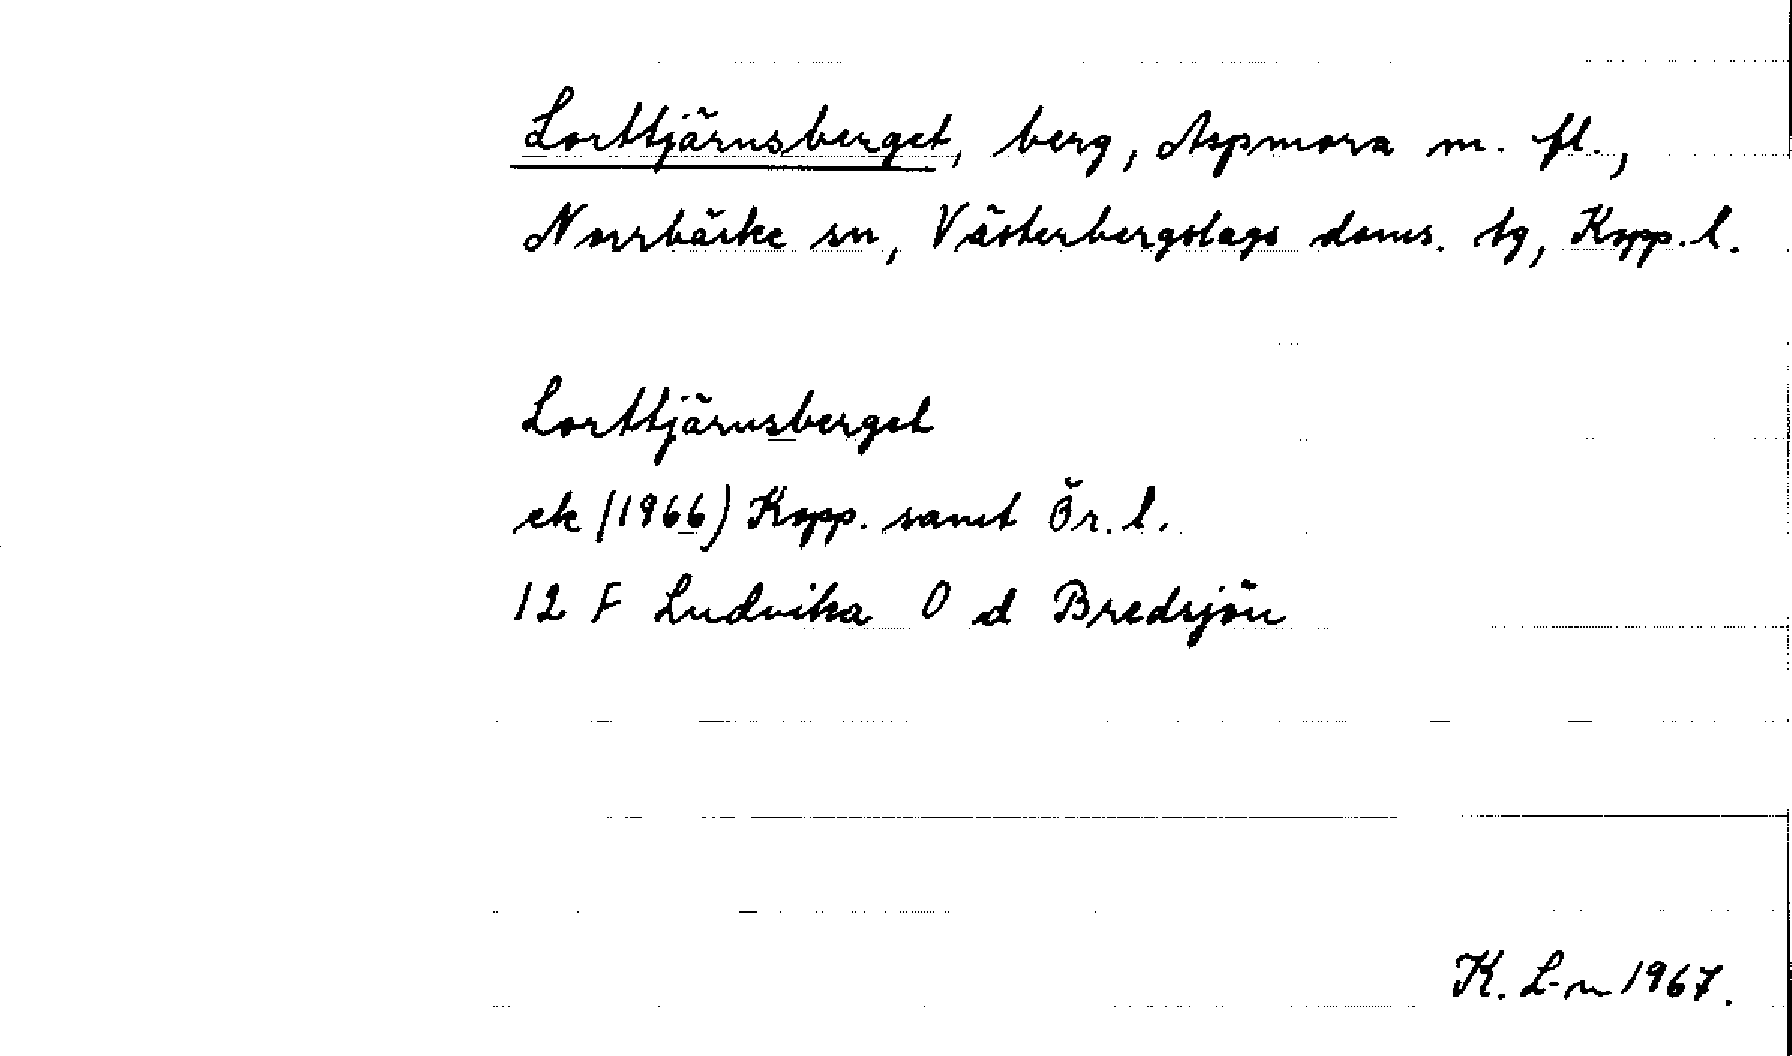 Lorttjärnsberget, berg, Aspmora m. fl.,
Norrbärke sn, Västerbergslags doms. tg, Kopp. l.
Lorttjärnsberget
ek (1966) Kopp. samt Ör. l.
12 F Ludvika O d Bredsjön
K. L-n 1967.